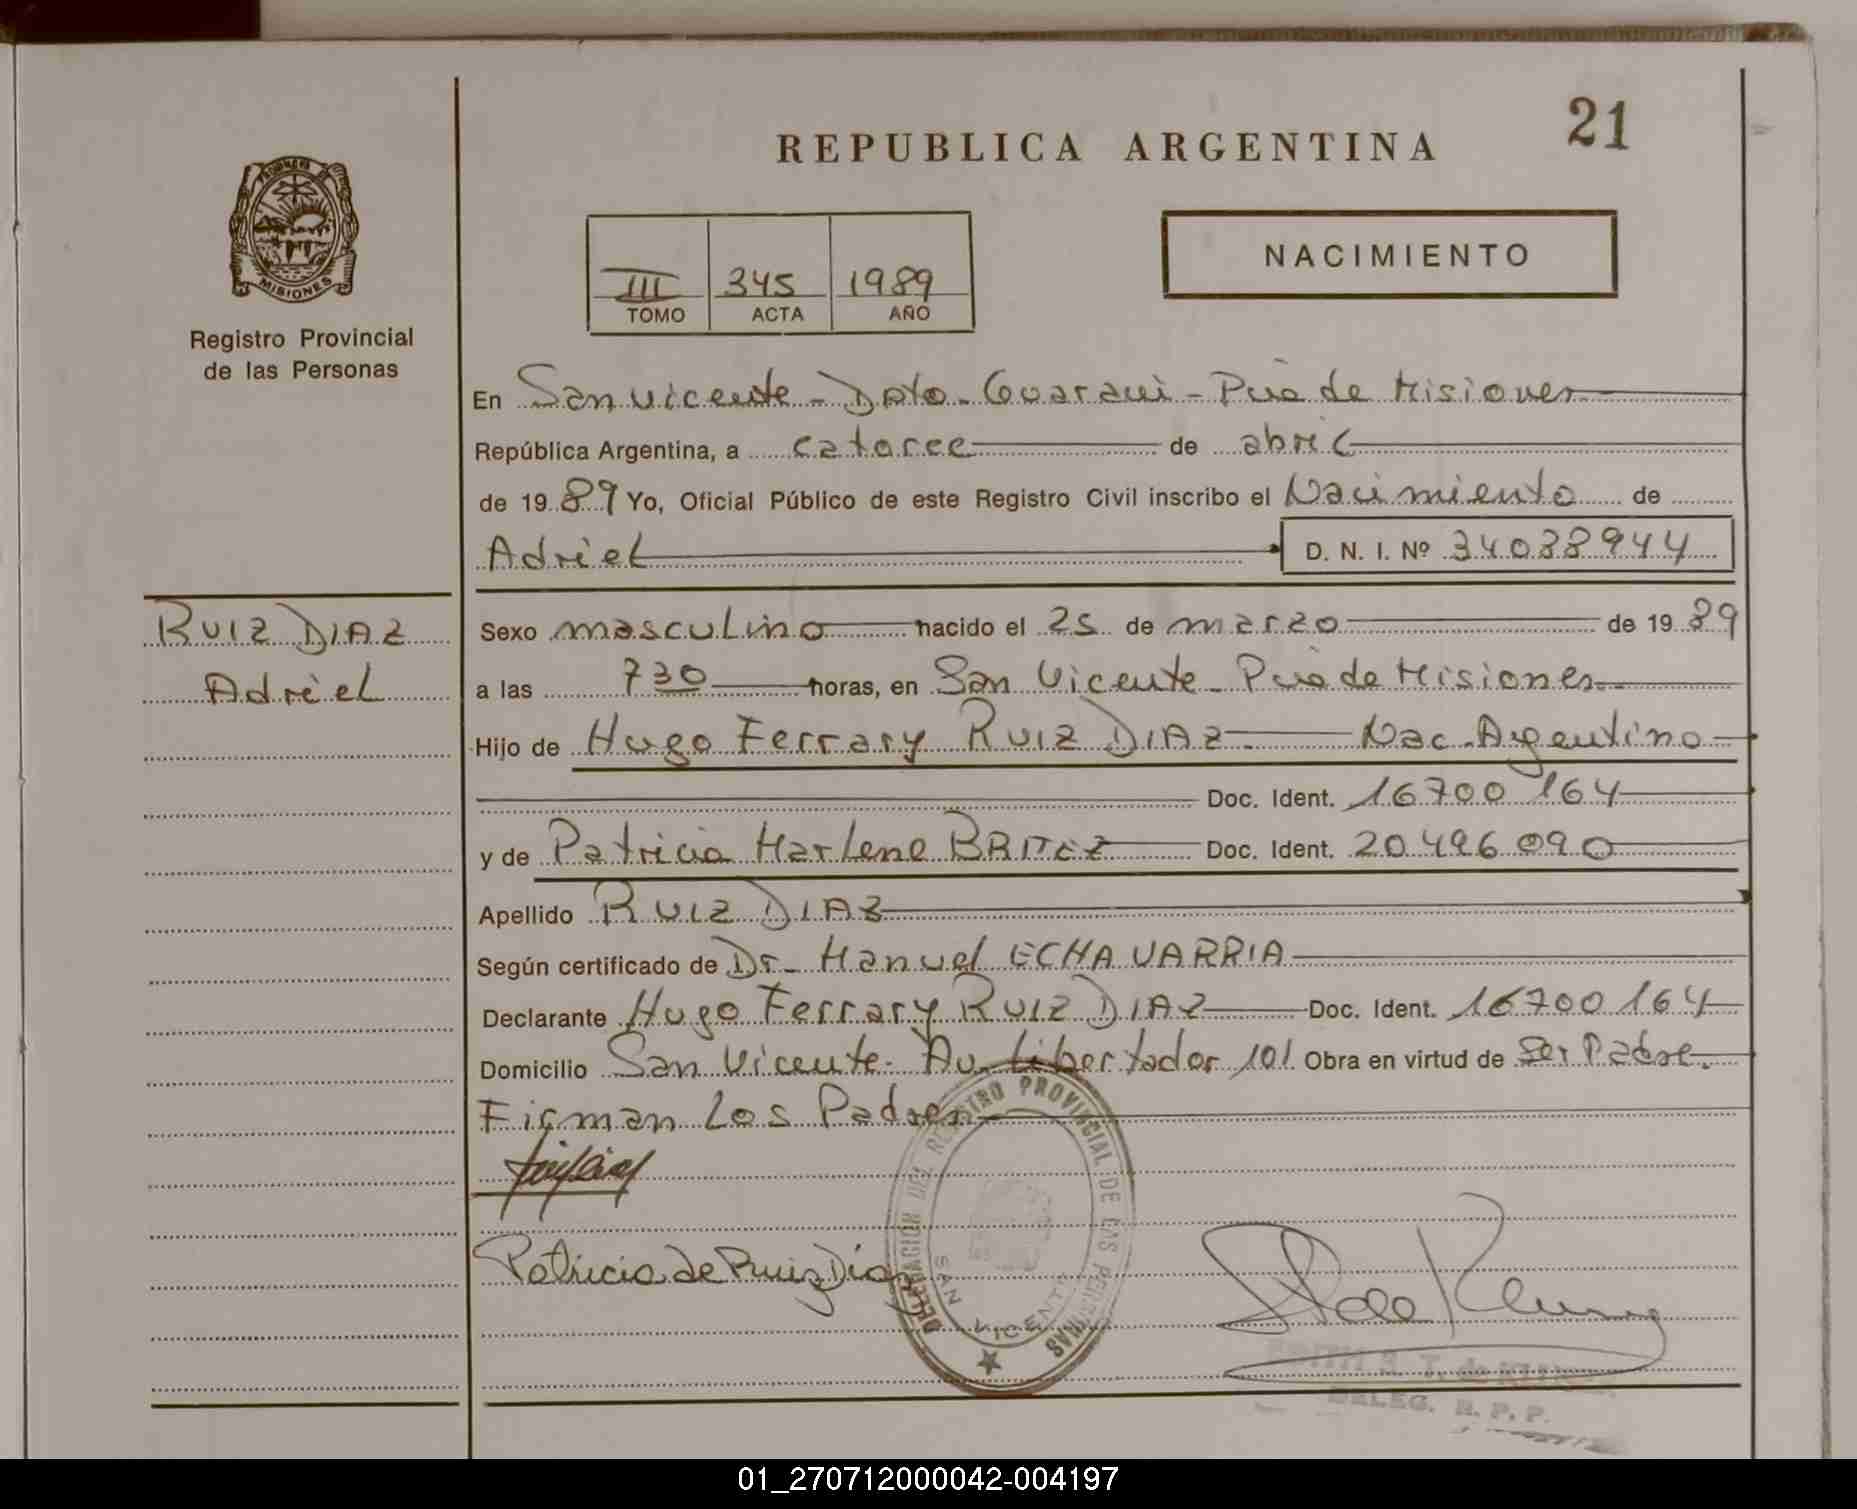 21
REPUBLICA ARGENTINA
NACIMIENTO
III 345 1989
TOMO ACTA AÑO
MISIONES
Registro Provincial
de las Personas
En San Vicente - Dpto. Guaraní - Pcia de Misiones
República Argentina, a catorce de abril
de 19 89 Yo, Oficial Público de este Registro Civil inscribo el Nacimiento de
Adriel D. N. I. Nº 34038944
RUIZ DIAZ
Adriel
Sexo masculino nacido el 25 de marzo de 19 89
a las 7 30 horas, en San Vicente - Pcia de Misiones
Hijo de Hugo Ferrary RUIZ DIAZ. Nac. Argentino
Doc. Ident. 16700164
y de Patricia Marlene BRITEZ Doc. Ident. 20496090
Apellido RUIZ DIAZ
Según certificado de Dr. Manuel ECHAVARRIA
Declarante Hugo Ferrary RUIZ DIAZ Doc. Ident. 16700164
Domicilio San Vicente - Av. Libertador 101 Obra en virtud de Ser Padre.
Firman Los Padres
Patricia de Ruiz Diaz
DELEGACION DEL REGISTRO PROVINCIAL DE LAS PERSONAS
SAN VICENTE
DELEG. R. P. P.
01_270712000042-004197